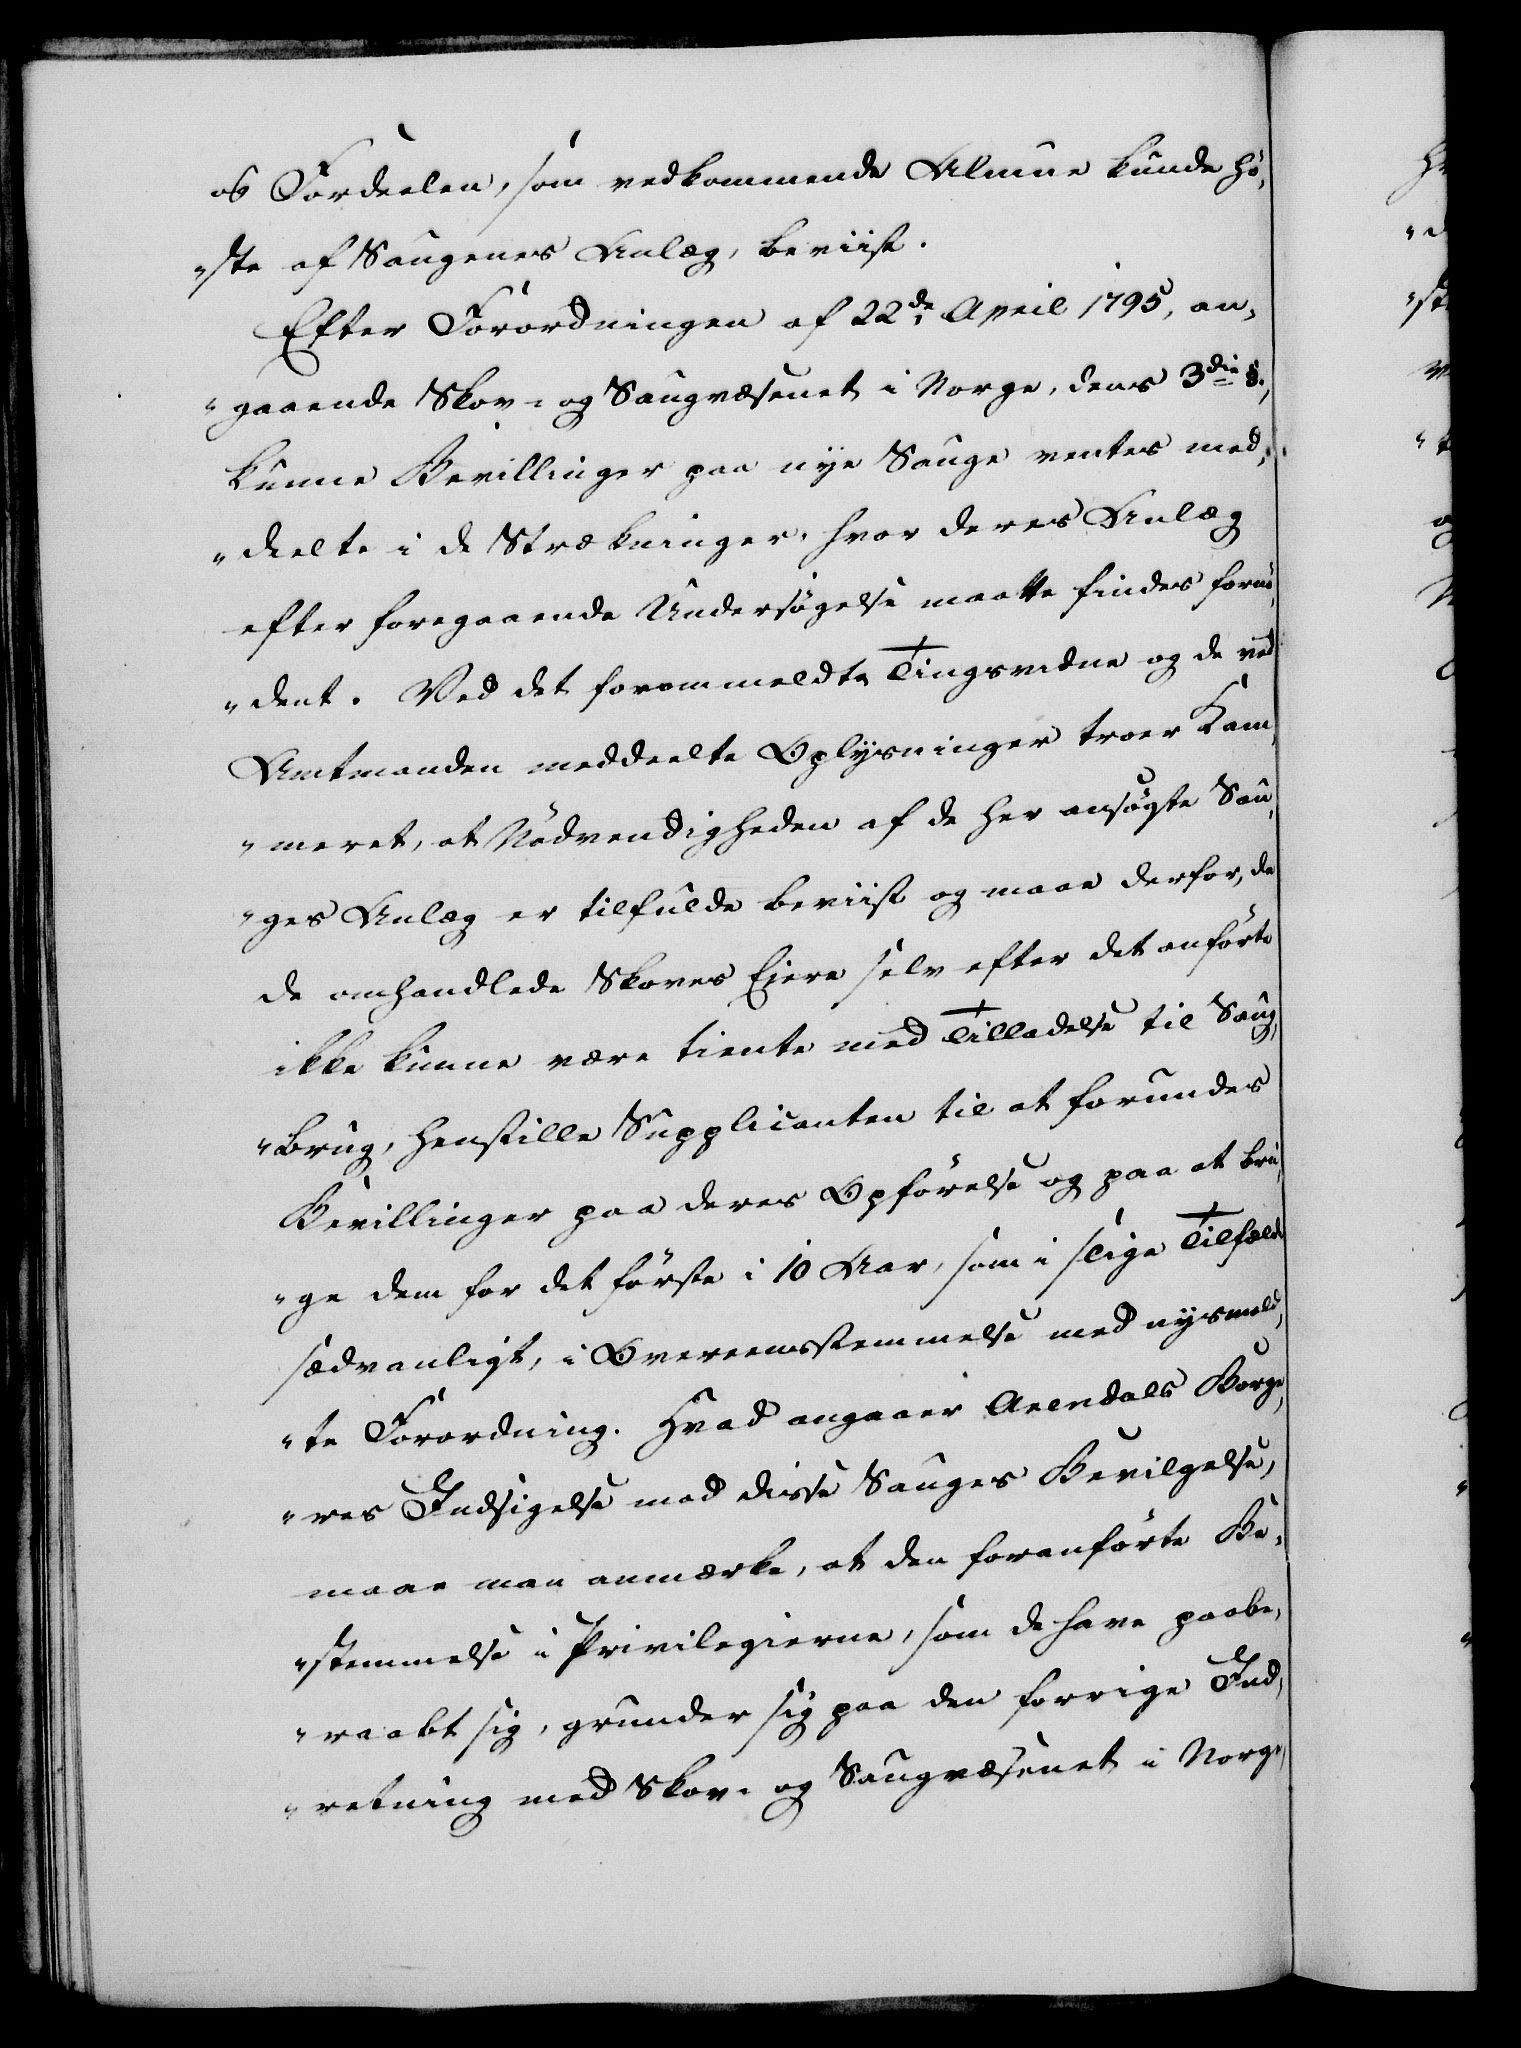 og Fordeelen, som vedkommende Almue kunde hö,
„ste af Saugenes Anlæg, beviist.
Efter Forordningen af 22de April 1795, an,
„gaaende Skov- og Saugvæsenet i Norge, dens 3die §.,
kunne Bevillinger paa nye Sauge ventes med,
„deelte i de Strækninger, hvor deres Anlæg
efter foregaaende Undersögelse maatte findes fornö,
„dent. Ved det forommeldte Tingsvidne og de ved
Amtmanden meddeelte Oplysninger troer Kam,
„meret, at Nödvendigheden af de her ansögte Sau,
„ges Anlæg er tilfulde beviist og maae derfor, da
de omhandlede Skoves Ejere selv efter det anförte
ikke kunne være tiente med Tilladelse til Saug,
„brug, henstille Supplicanten til at forundes
Bevillinger paa deres Opförelse og paa at bru,
„ge dem for det förste i 10 Aar, som i slige Tilfælde
sædvanligt, i Overeensstemmelse med nysmeld,
„te Forordning. Hvad angaaer Arendals Borge,
„res Indsigelse mod disse Sauges Bevilgelse,
maae man anmærke, at den foranförte Be,
„stemmelse i Privilegierne, som de have paabe,
„raabt sig, grunder sig paa den forrige Ind,
„retning med Skov- og Saugvæsenet i Norge,